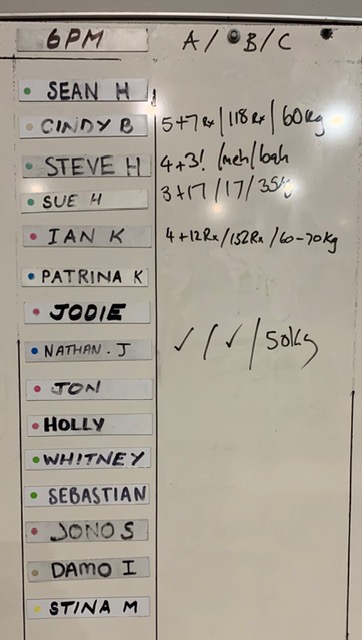 6PM A / B / C
SEAN H
CINDY B 5+7 Rx / 118 Rx / 60kg
STEVE H 4+3! / meh / bah
SUE H 3+17 / 17 / 35kg
IAN K 4+12Rx / 152Rx / 60-70kg
PATRINA K
JODIE
NATHAN.J ✓ / ✓ / 50kg
JON
HOLLY
WHITNEY
SEBASTIAN
JONO S
DAMO I
STINA M